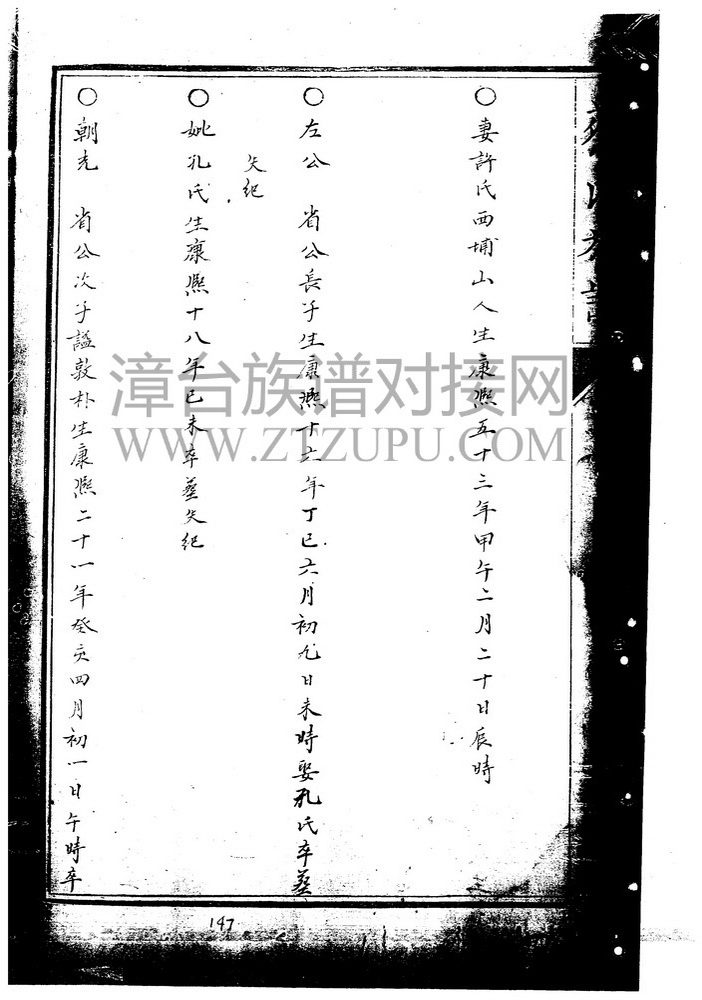 ○妻許氏西埔山人生康熙五十三年甲午二月二十日辰時
○左公 省公長子生康熙十六年丁巳六月初九日未時娶孔氏卒葬
失紀
○妣孔氏生康熙十八年已未卒葬失紀
○朝先 省公次子謚敦朴生康熙二十一年癸亥四月初一日午時卒
漳台族谱对接网
WWW.ZTZUPU.COM
147